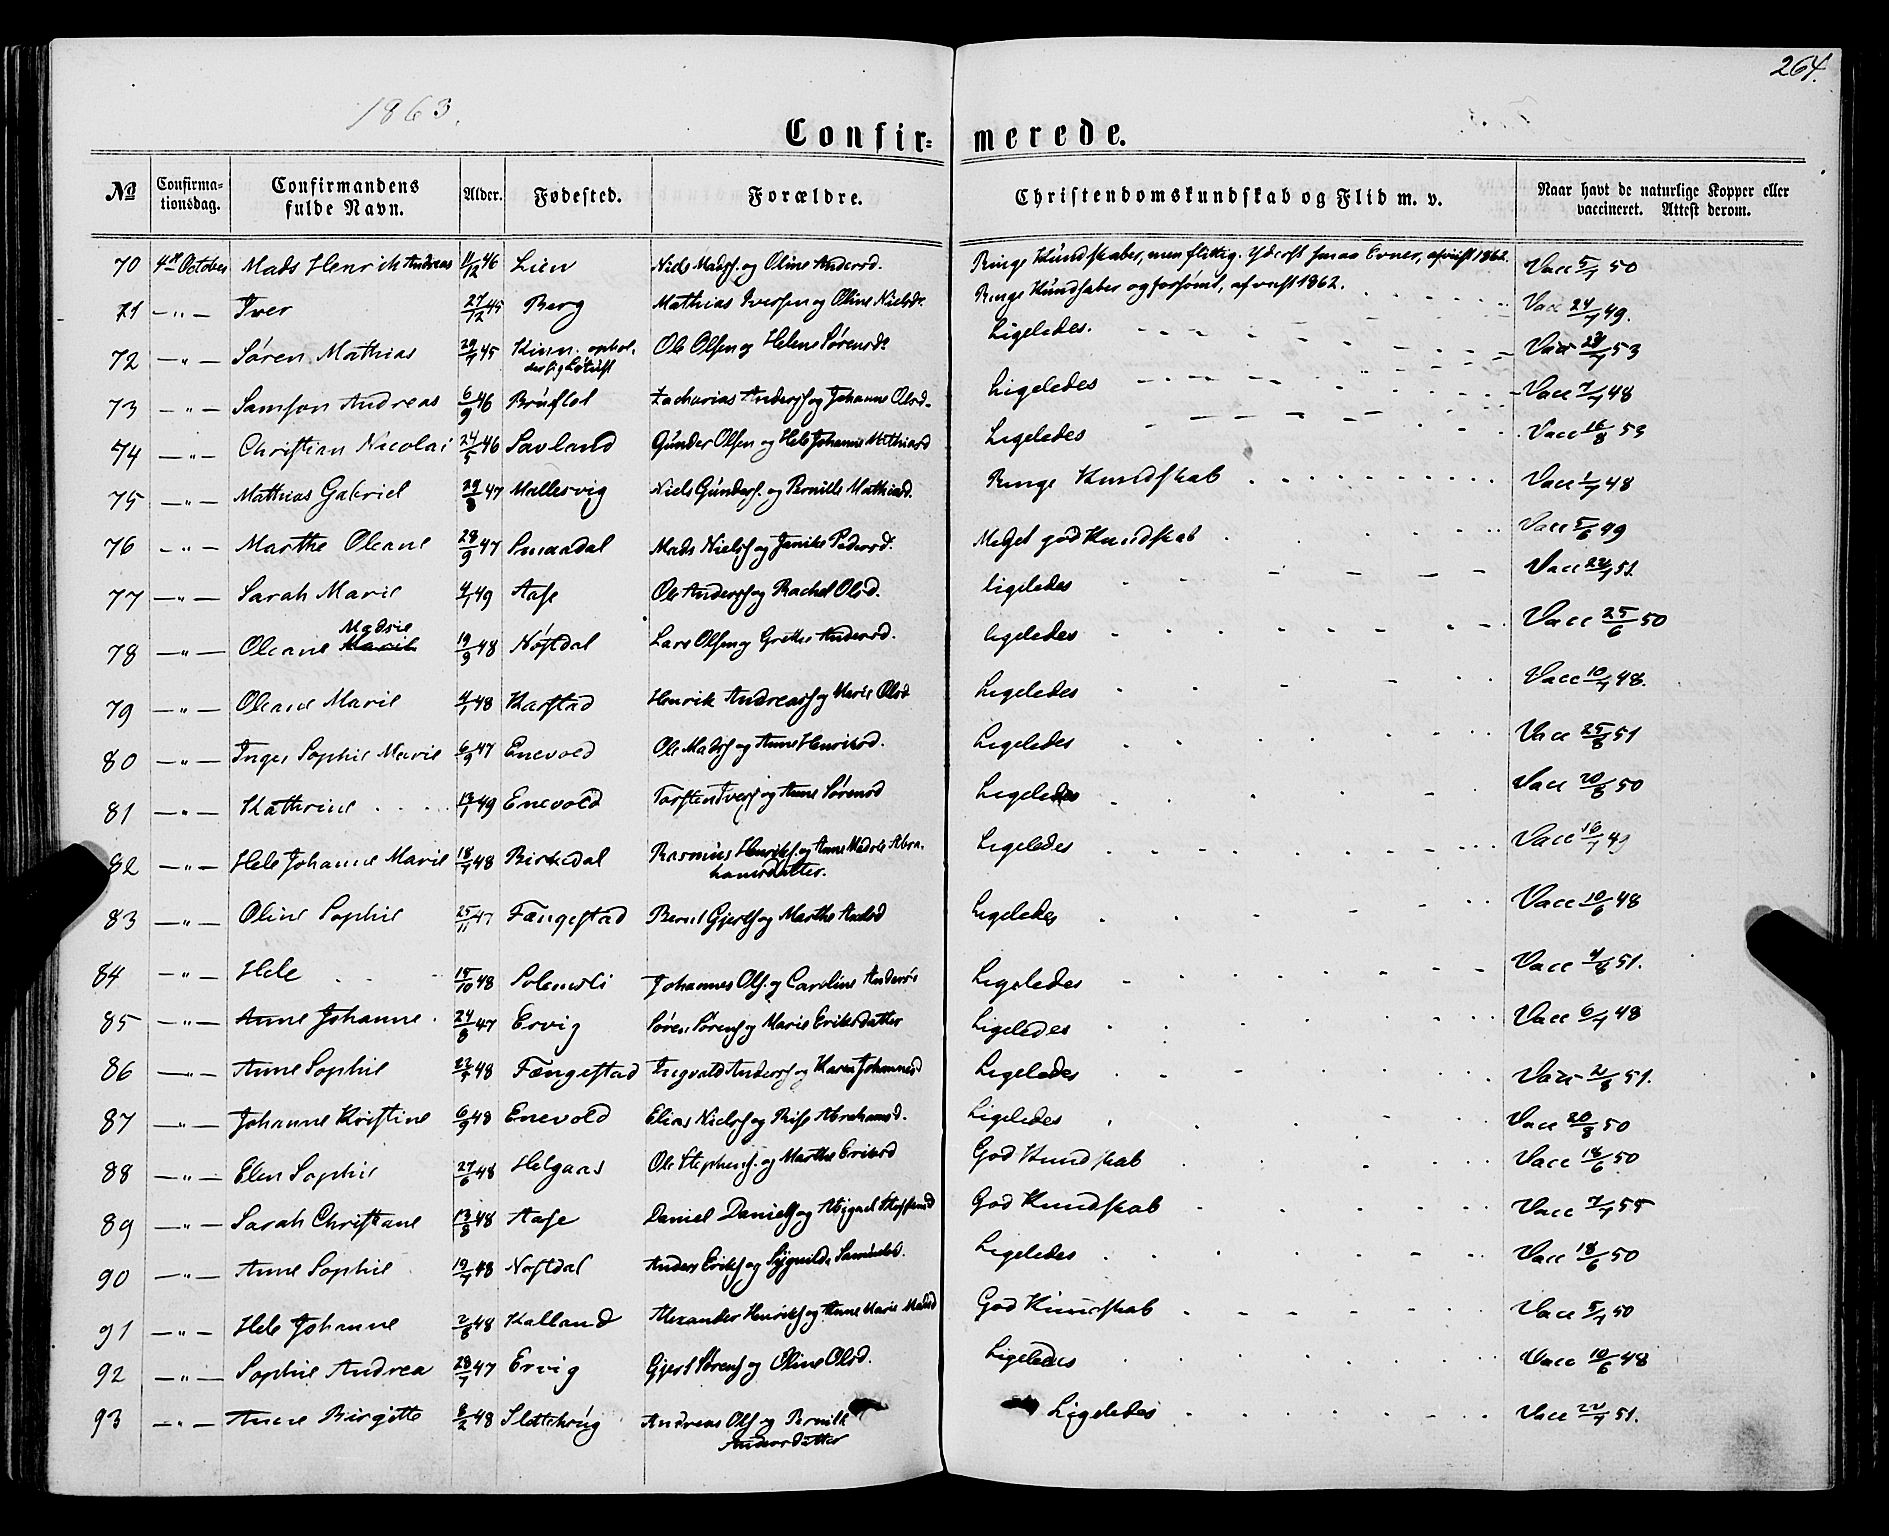 264.
1863.
Confir= merede.
No Confirma-tionsdag. Confirmandens fulde Navn. Alder. Fødested. Forældre. Christendomskundskab og Flid m. v. Naar havt de naturlige Kopper eller vaccineret. Attest derom.
70 4de October Mads Henrik Andreas 11/12 46 Lien Niels Madss. og Oline Andersd. Ringe Kundskaber, men flittig. Yderst smaa Evner, afviist 1862. Vacc 5/7 50
71 —"— Iver 27/12 45 Berg Mathias Iversen og Oline Nielsdr Ringe Kundskaber og forsømt, afviist 1862. Vacc 24/7 49.
72 —"— Søren Mathias 29/7 45 Kinn. ophol. Ole Olsen og Helene Sørensdr Ligeledes. Vacc 29/7 53
73 —"— Samson Andreas 6/9 46 Bruflot Zacharias Anderss og Johanne Olsd. Ligeledes Vacc 7/7 48
74 —"— Christian Nicolai 24/5 46 Savland Gunder Olsen og Hele Johanne Mathiasd Ligeledes Vacc 16/8 53
75 —"— Mathias Gabriel 29/8 47 Mallesvig Niels Gunders. og Pernille Mathiasd. Ringe Kundskab Vacc 1/7 48
76 —"— Marthe Oleane 28/9 47 Smaadal Mads Nielss og Janike Pedersd. Meget god Kundskab Vacc 5/6 49
77 —"— Sarah Marie 4/1 49 Aase Ole Anderss og Rachel Olsd. ligeledes Vacc 22/7 51.
78 —"— Oleane Madsie 19/9 48 Nøstdal Lars Olsen og Grethe Andersd. ligeledes Vacc 25/6 50
79 —"— Oleane Marie 4/1 48 Karstad Henrik Andreass og Marie Olsd Ligeledes Vacc 10/7 48.
80 —"— Inger Sophie Marie 6/9 47 Enevold Ole Madss og Anne Henriksd. Ligeledes Vacc 25/8 51
81 —"— Kathrine 13/1 49 Enevold Torsten Iverss og Anne Sørensd Ligeledes Vacc 20/8 50
82 —"— Hele Johanne Marie 18/7 48 Birkedal Rasmus Henriks. og Anne Madsie Abra-
hamsdatter. Ligeledes Vacc 16/7 49
83 —"— Oline Sophie 25/11 47 Fængestad Bernt Gjerts og Marthe Andsd Ligeledes Vacc 10/6 48
84 —"— Hele 15/10 48 Solemsli Johannes Ols. og Caroline Andersd Ligeledes Vacc 4/8 51.
85 —"— Anne Johanne 24/8 47 Ervig Søren Sørens og Marie Eriksdatter Ligeledes Vacc 6/7 48
86 —"— Anne Sophie 22/5 48 Fængestad Ingvald Anderss og Karen Johannesd Ligeledes Vacc 2/8 51.
87 —"— Johanne Kristine 6/9 48 Enevold Elias Nielss og Rise Abrahamsd. Ligeledes Vacc 20/8 50
88 —"— Elen Sophie 27/6 48 Helgaas Ole Stephens. og Marthe Eriksd God Kundskab Vacc 18/6 50
89 —"— Sarah Christiane 13/8 48 Aase Daniel Daniels og Abigael God Kundskab Vacc 7/7 55
90 —"— Anne Sophie 19/7 48 Nøstdal Anders Eriks og Sygnilde Samuelsd. Ligeledes Vacc 18/6 50
91 —"— Hele Johanne 2/8 48 Kalland Alexander Henriks og Anne Marie Madsd God Kundskab Vacc 5/7 50
92 —"— Sophie Andrea 28/7 47 Ervig Gjert Sørens og Oline Olsd. Ligeledes Vacc 10/6 48
93 —"— Anne Birgitte 8/2 48 Slettehoug Andreas Ols og Pernille
Andersdatter Ligeledes Vacc 22/7 51.